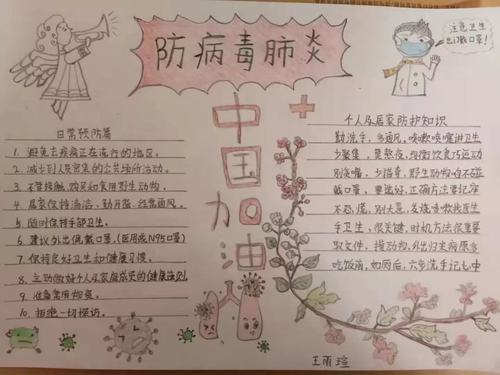 防病毒肺炎
注意卫生
出门戴口罩！
中国加油
日常预防篇
1. 避免去疾病正在流行的地区。
2. 减少到人员密集的公共场所活动。
3. 不要接触、购买和食用野生动物。
4. 居家保持清洁，勤开窗，经常通风。
5. 随时保持手部卫生。
6. 建议外出佩戴口罩（医用或N95口罩）
7. 保持良好卫生和健康习惯。
8. 主动做好个人及家庭成员的健康监测
9. 准备常用物资。
10. 拒绝一切探访。
个人及居家防护知识
勤洗手，多通风，咳嗽喷嚏讲卫生
少聚集，莫熬夜，均衡饮食巧运动
戴口罩，要选好，正确方法要记牢
手卫生，很关键，时机方法很重要
取文件，接动物，外出归来病原多
吃饭前，如厕后，六步洗手记心中
王雨瑄